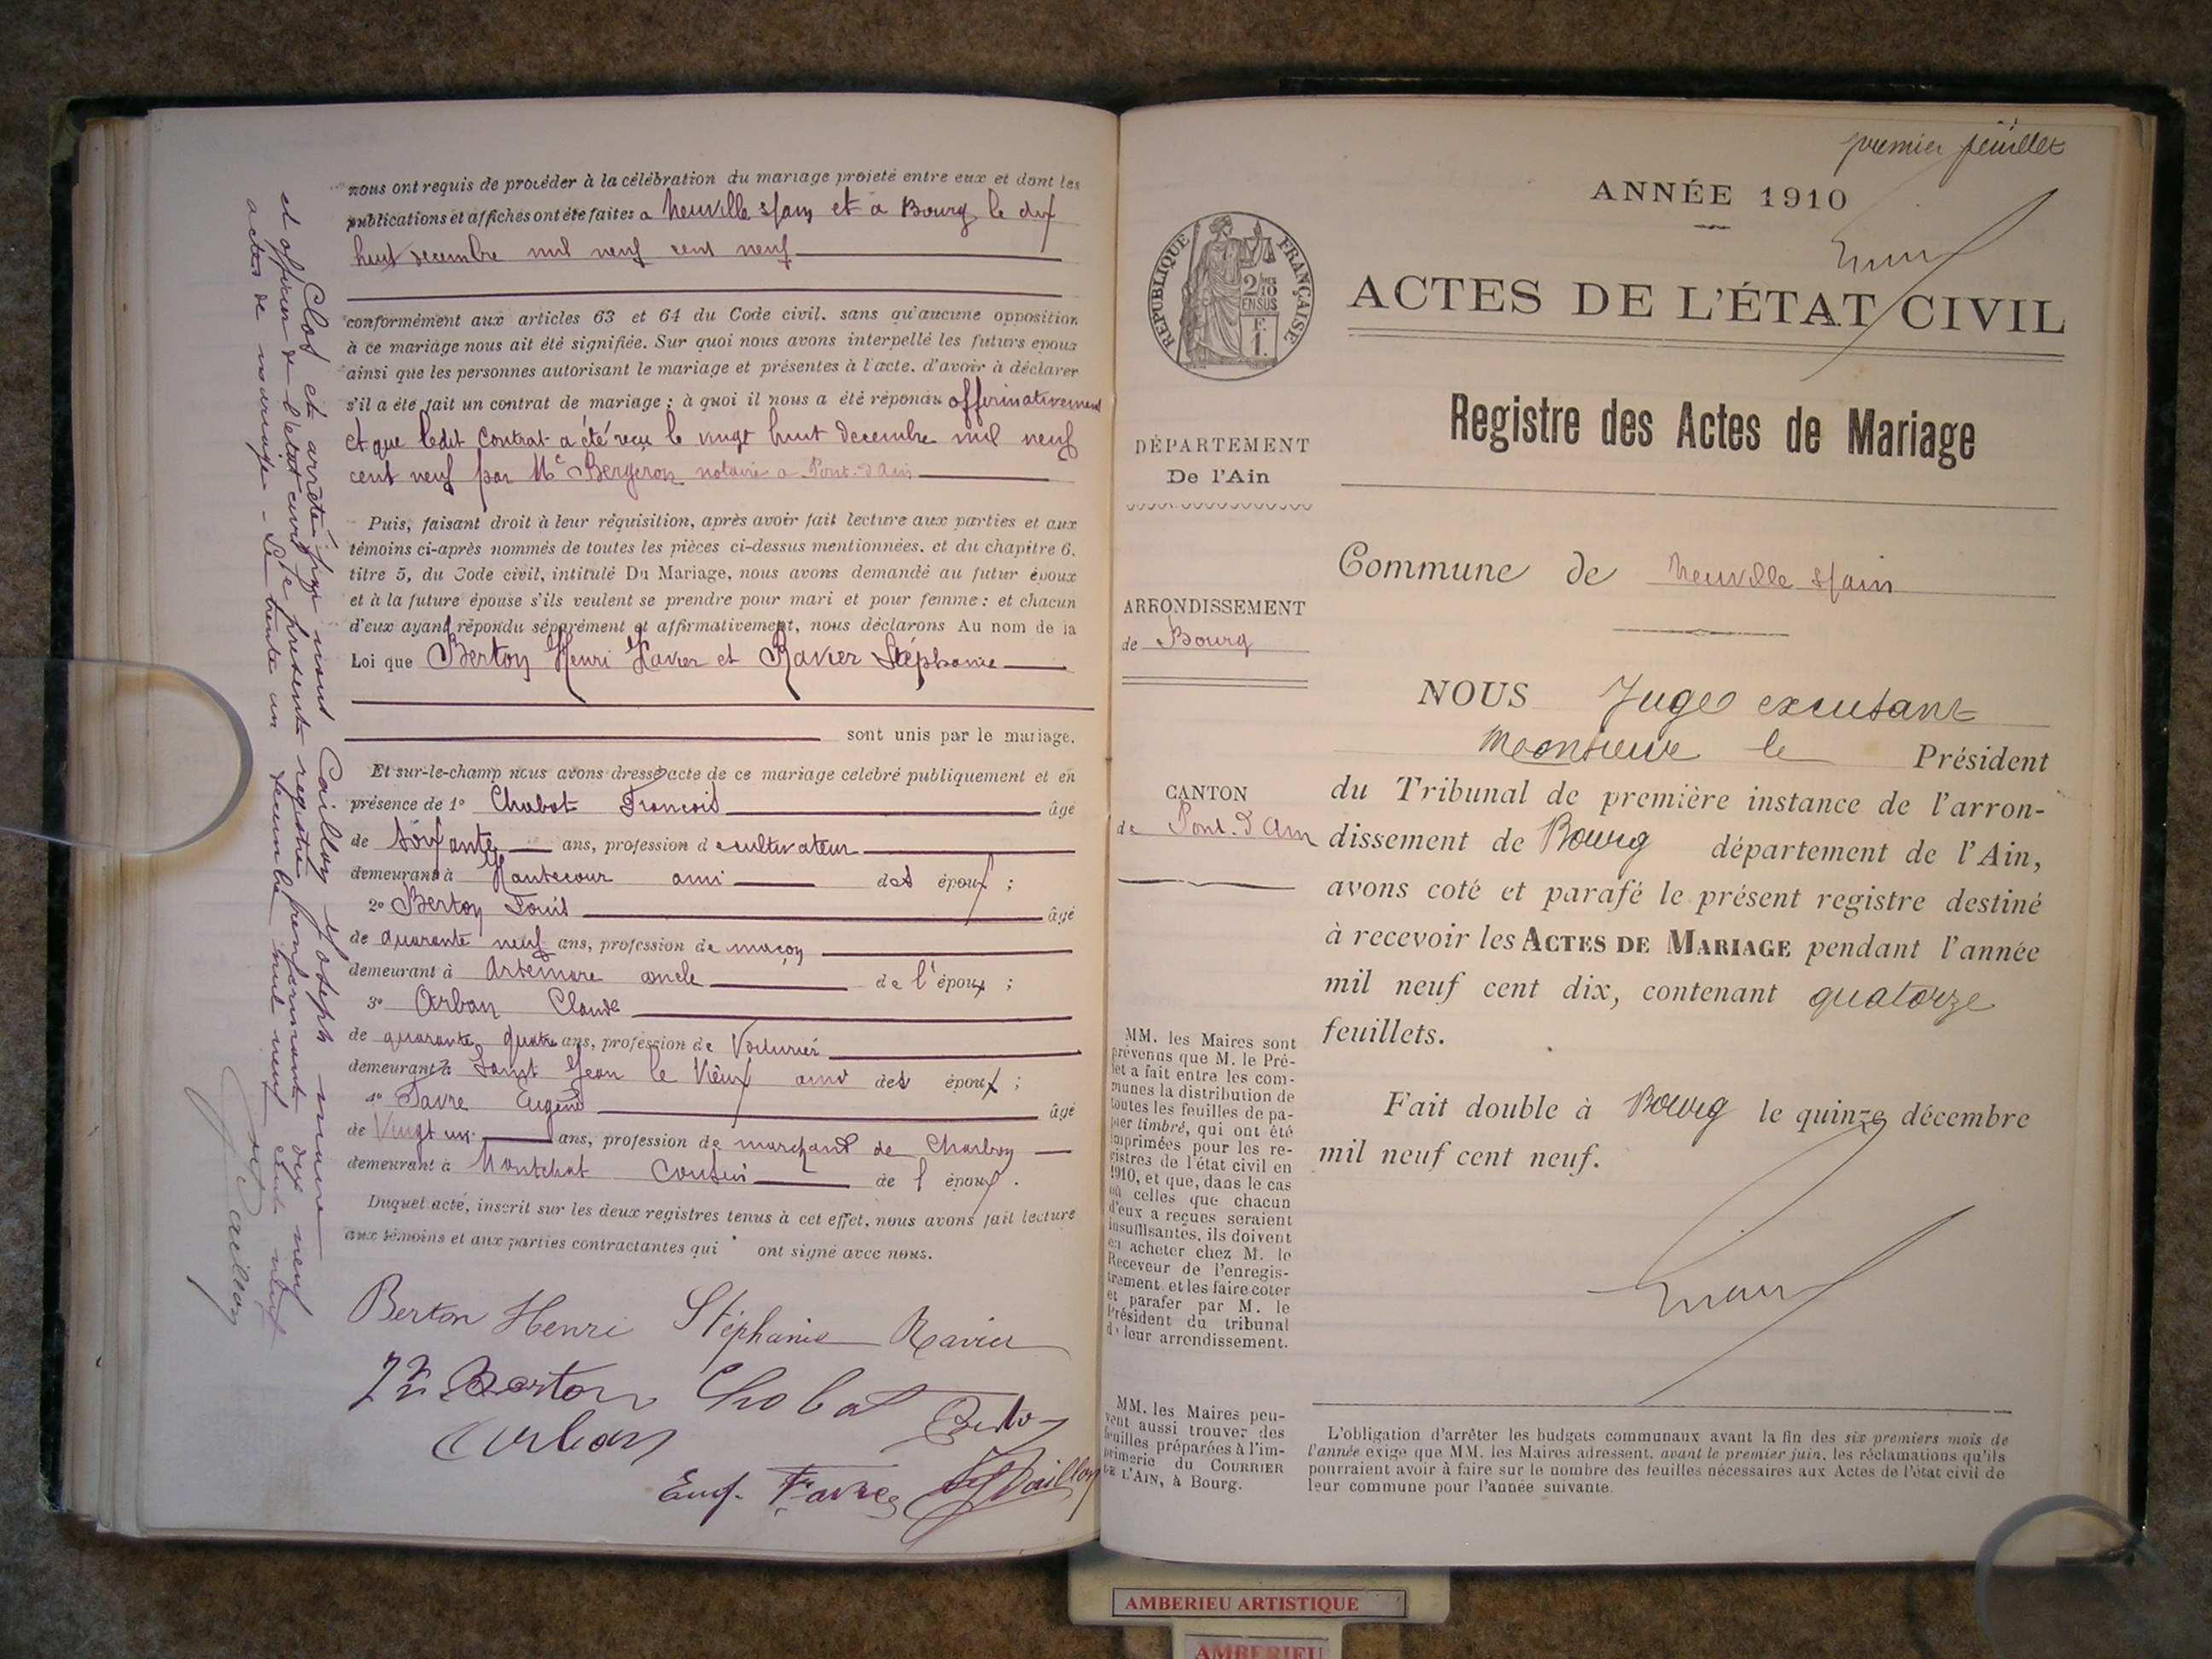 nous ont requis de procéder à la célébration du mariage projeté entre eux et dont les
publications et affiches ont été faites a Neuville s/ain et a Bourg le dix
huit decembre mil neuf cent neuf
conformément aux articles 63 et 64 du Code civil. sans qu'aucune opposition
à ce mariage nous ait été signifiée. Sur quoi nous avons interpellé les futurs epoux
ainsi que les personnes autorisant le mariage et présentes à l'acte. d'avoir à déclarer
s'il a été fait un contrat de mariage ; à quoi il nous a été répondu affirmativement
et que ledit contrat a été reçu le vingt huit decembre mil neuf
cent neuf par Me Bergeron notaire a Pont-d'Ain
Puis, faisant droit à leur réquisition, après avoir fait lecture aux parties et aux
témoins ci-après nommés de toutes les pièces ci-dessus mentionnées. et du chapitre 6.
titre 5, du Code civil, intitulé Du Mariage, nous avons demandé au futur époux
et à la future épouse s'ils veulent se prendre pour mari et pour femme : et chacun
d'eux ayant répondu séparément et affirmativement, nous déclarons Au nom de la
Loi que Berton Henri Xavier et Ravier Stéphanie
sont unis par le mariage.
Et sur-le-champ nous avons dressé acte de ce mariage celebré publiquement et en
présence de 1° Chabot Francois âgé
de soixante ans, profession d cultivateur
demeurant à Hautecour ami des époux ;
2° Berton Louis âgé
de quarante neuf ans, profession de maçon
demeurant à Artemare oncle de l'époux ;
3° Arban Claude
de quarante quatre ans, profession de Voiturier
demeurant à Saint Jean le Vieux ami des époux ;
4° Favre Eugène âgé
de Vingt un ans, profession de marchand de Charbon
demeurant à Montchat Cousin de l époux.
Duquel acté, inscrit sur les deux registres tenus à cet effet, nous avons fait lecture
aux témoins et aux parties contractantes qui ont signé avec nous.
Berton Henri Stéphanie Ravier
Berton Chobat
Arban Berton
Eug. Favre Caillon
Clos et arrêté par nous Caillon Joseph maire
et officier de l'etat civil le present registre renfermant dix neuf
actes de mariage - Le trente un decembre mil neuf cent neuf
Caillon
premier feuillet
ANNÉE 1910
RÉPUBLIQUE FRANÇAISE
ACTES DE L'ÉTAT CIVIL
Registre des Actes de Mariage
DÉPARTEMENT
De l'Ain
Commune de Neuville s/ain
ARRONDISSEMENT
de Bourg
CANTON
de Pont-d'Ain
NOUS Juge excusant
Monsieur le Président
du Tribunal de première instance de l'arron-
dissement de Bourg département de l'Ain,
avons coté et parafé le présent registre destiné
à recevoir les ACTES DE MARIAGE pendant l'année
mil neuf cent dix, contenant quatorze
feuillets.
Fait double à Bourg le quinze décembre
mil neuf cent neuf.
MM. les Maires sont
prévenus que M. le Pré-
fet a fait entre les com-
munes la distribution de
toutes les feuilles de pa-
pier timbré, qui ont été
imprimées pour les re-
gistres de l'état civil en
1910, et que, dans le cas
où celles que chacun
d'eux a reçues seraient
insuffisantes, ils doivent
en acheter chez M. le
Receveur de l'enregis-
trement et les faire coter
et parafer par M. le
Président du tribunal
de leur arrondissement.
MM. les Maires peu-
vent aussi trouver des
feuilles préparées à l'im-
primerie du COURRIER
DE L'AIN, à Bourg.
L'obligation d'arrêter les budgets communaux avant la fin des six premiers mois de
l'année exige que MM. les Maires adressent, avant le premier juin, les réclamations qu'ils
pourraient avoir à faire sur le nombre des feuilles nécessaires aux Actes de l'état civil de
leur commune pour l'année suivante.
AMBERIEU ARTISTIQUE
AMBERIEU